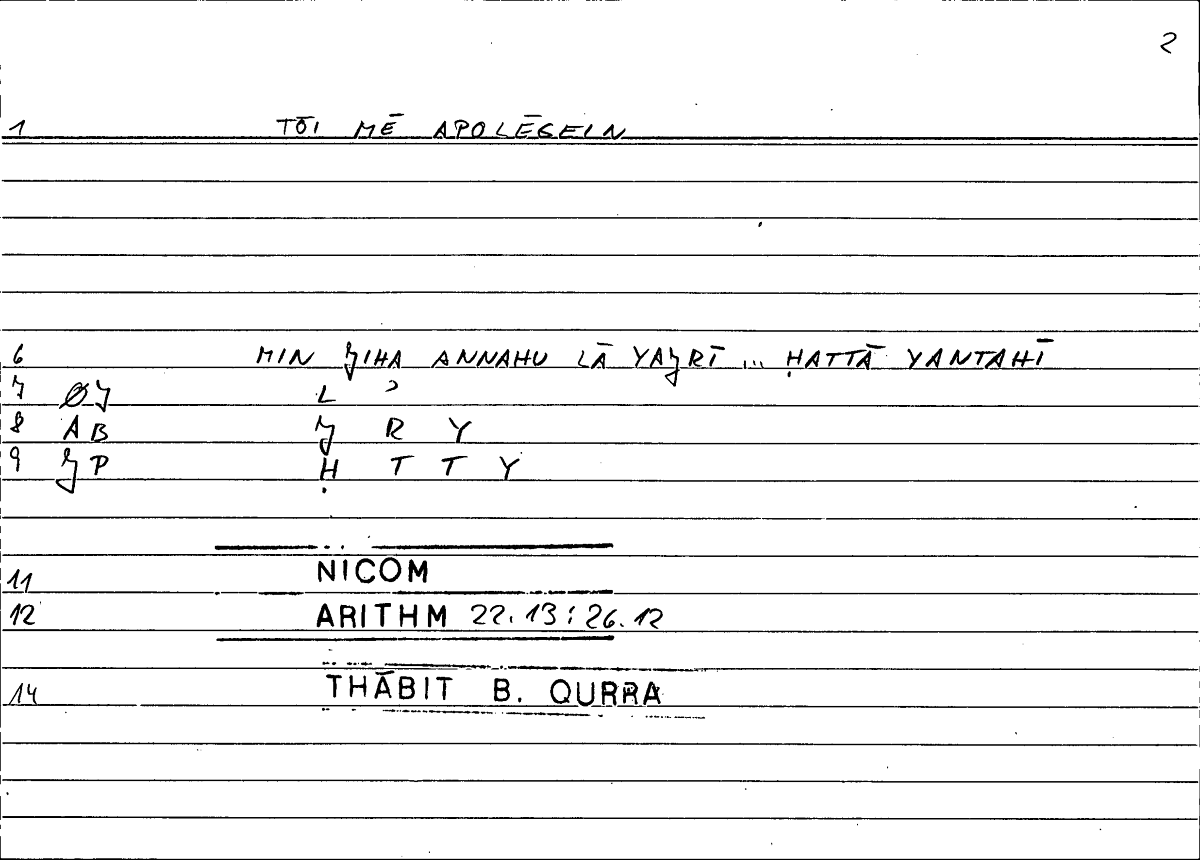 2
1 TŌI MĒ APOLĒGEIN
6 MIN JIHA ANNAHU LĀ YAJRĪ ... ḤATTĀ YANTAHĪ
7 ØJ L ʾ
8 AB J R Y
9 JP Ḥ T T Y
11 NICOM
12 ARITHM 22.13; 26.12
14 THĀBIT B. QURRA